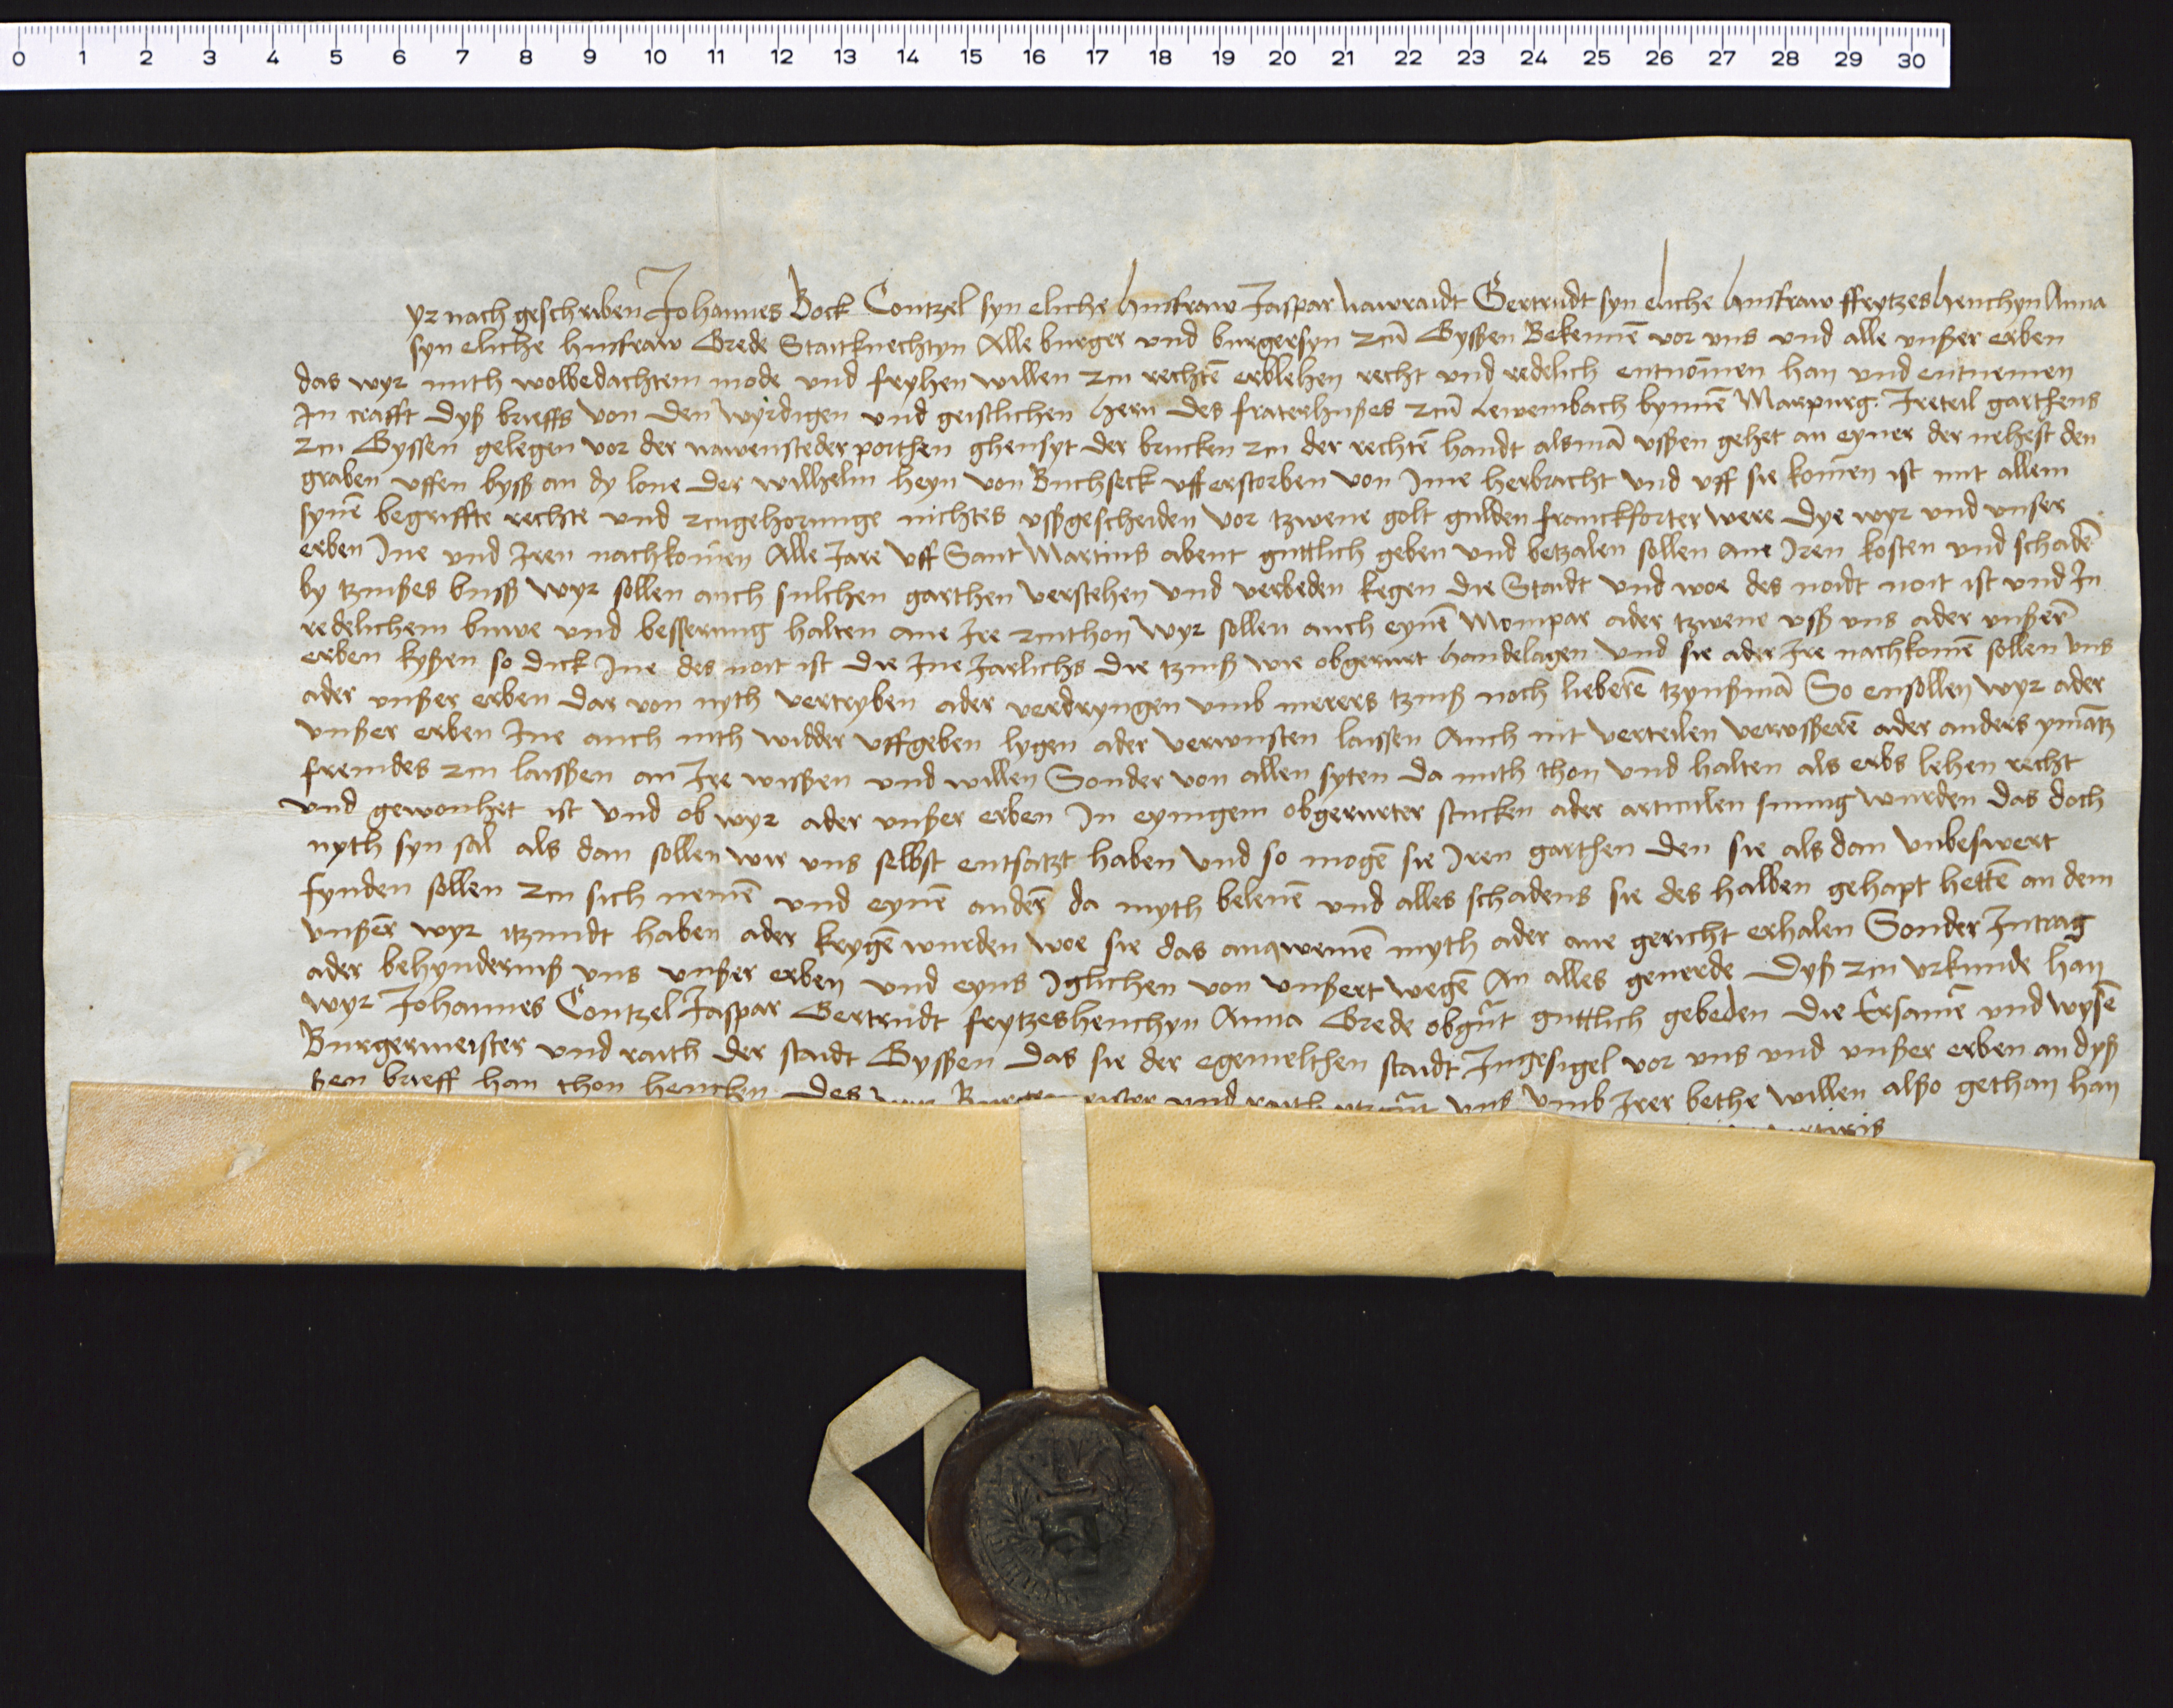 0 1 2 3 4 5 6 7 8 9 10 11 12 13 14 15 16 17 18 19 20 21 22 23 24 25 26 27 28 29 30
yr nach geschreben Johannes Bock Contzel syn eliche husfraw Jaspar Nawraidt Gertrudt syn eliche husfraw ffrytzeshenchyn Anna
syn eliche husfraw Grede Staitknechtyn Alle burger und burgersyn zcu Gyssen Bekennē vor uns und alle unßer erben
das wyr mith wolbedachtem mode und fryhen willen zcu rechtē erblehen recht und redelich entnōmen han und entnemen
In crafft dyß brieffs von den wyrdigen und geistlichen hern des fraterhußes zcū Lewembach bynnē Marpurg Ireteil garthens
zcu Gyssen gelegen vor der nawensteder porthen ghensyt der brucken zcu der rechtē handt alsmā ußen gehet an eyner der nehest den
graben uffen byß an dy lone der wilhelm heyn von Buchseck uff erstorben von Ime herbracht und uff sie komen ist mit allem
synē begriffte rechte und zcugehorunge nichtes ußgescheiden vor tzwene golt gulden franckforter were dye wyr und unser
erben Ine und Iren nachkomen Alle Jare uff Sant Martins abent guttlich geben und betzalen sollen ane Iren kosten und schadē
by tzinßes buß wyr sollen auch sulchen garthen verstehen und verbeden kegen die Staidt und woe des noidt noit ist und In
redelichem buwe und besserung halten ane Ire zcuthon wyr sollen auch eynē Mompar ader tzwene uß uns ader unßerē
erben kyßen so dick Ine des noit ist die Ine Jarlichs die tzinß wie obgerurt handelagen und sie ader Ire nachkomē sollen uns
ader unßer erben dar von nyth vertryben ader verdryngen umb merers tzinß noch lieberē tzynßmā So ensollen wyr ader
unßer erben Ine auch nith widder uffgeben lygen ader verwusten laissen Auch nit verteilen verußerē ader anders ymātz
fremdes zcu laissen an Ire wissen und willen Sonder von allen syten da mith thon und halten als erbs lehen recht
und gewonhet ist und ob wyr ader unßer erben In eyingem obgerurter stucken ader articulen sumig wurden das doch
nyth syn sal als dan sollen wir uns selbst entsatzt haben und so mogē sie Iren garthen den sie als dan unbeswert
fynden sollen zcu sich nemē und eynē anderē da myth belenē und alles schadens sie des halben gehapt hettē an dem
unßerē wyr itzundt haben ader krygē wurden woe sie das anqwemē myth ader ane gericht erhalen Sonder Intrag
ader behynderniß uns unßer erben und eyns Iglichen von unßert wegē An alles geuerde Dyß zcu urkunde han
wyr Johannes Contzel Jaspar Gertrudt frytzeshenchyn Anna Grede obgūt guttlich gebeden die Ersamē und wysē
Burgermeister und raith der staidt Gyssen das sie der egemelthen staidt Ingesigel vor uns und unßer erben an dyß
ßen brieff han thon hencken des wyr Burgermeister und raith itzgūt uns umb Irer bethe willen alßo gethan han